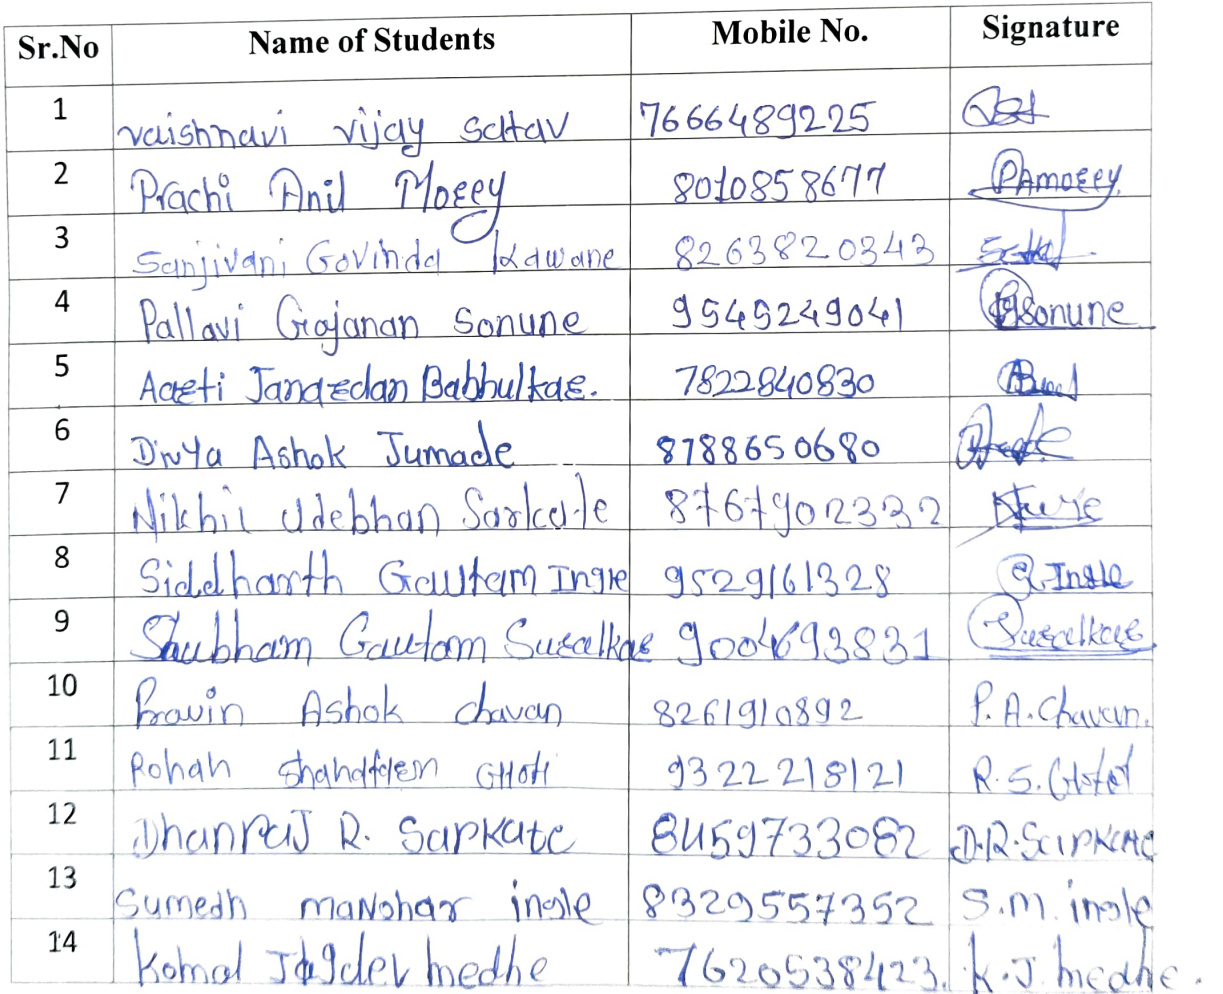 Sr.No Name of Students Mobile No. Signature
1 vaishnavi vijay 7666489225
2 Prachi Anil Morey 8010858677 PAmorey
3 Sanjivani Govinda Kawane 8263820343
4 Pallavi Gajanan Sonune 9545249041 PSonune
5 Aarti Janardan Babhulkar. 7822840830
6 Divya Ashok Jumade 8788650680
7 Nikhil Udebhan Sarkate 8767902332
8 Siddharth Gautam Ingle 9529161328 S.Ingle
9 Shubham Gautam Suralkar 9004693831 Suralkar
10 Pravin Ashok chavan 8261910892 P. A. Chavan.
11 Rohan 9322218121 R. S.
12 Dhanraj R. Sarkate 8459733082 D.R.Sarkate
13 Sumedh manohar ingle 8329557352 S.m. ingle
14 Komal Jagdev medhe 7620538423. K.J. medhe.